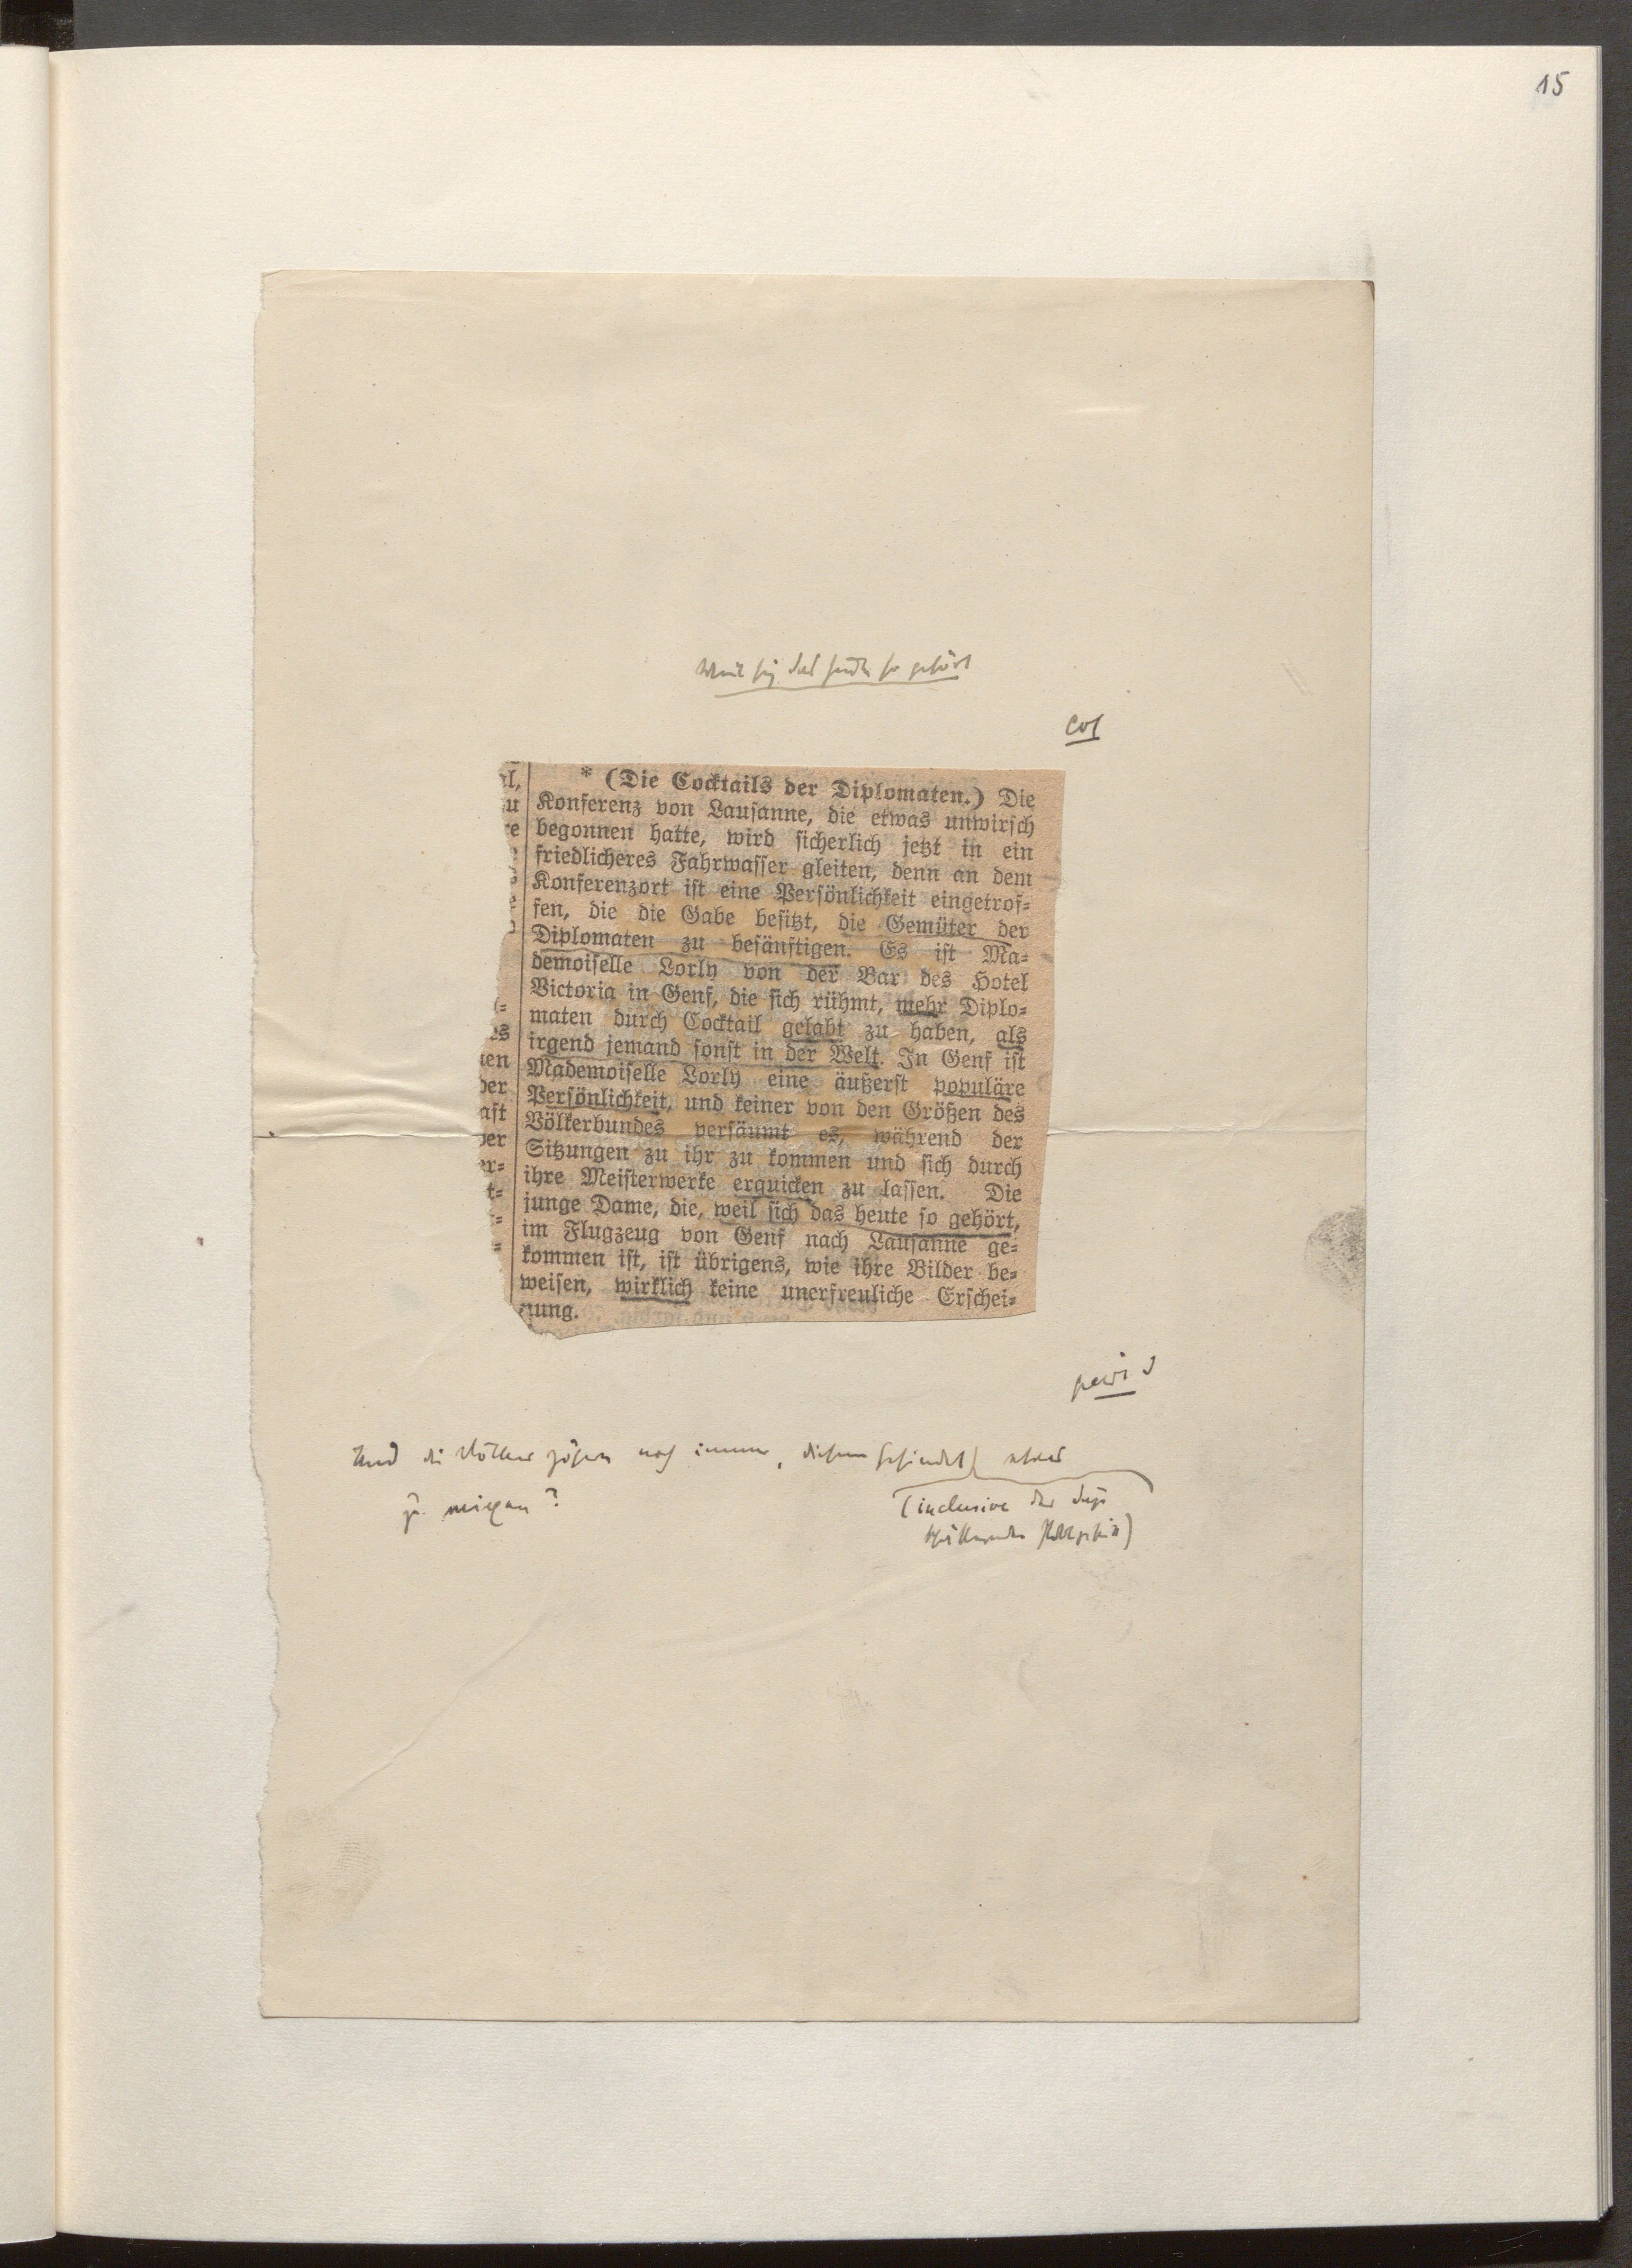 15
Weil sich das heute so gehört
Col
* (Die Cocktails der Diplomaten.) Die
Konferenz von Lausanne, die etwas unwirsch
begonnen hatte, wird sicherlich jetzt in ein
friedlicheres Fahrwasser gleiten, denn an dem
Konferenzort ist eine Persönlichkeit eingetrof=
fen, die die Gabe besitzt, die Gemüter der
Diplomaten zu besänftigen. Es ist Ma=
demoiselle Lorly von der Bar des Hotel
Victoria in Genf, die sich rühmt, mehr Diplo=
maten durch Cocktail gelabt zu haben, als
irgend jemand sonst in der Welt. In Genf ist
Mademoiselle Lorly eine äußerst populäre
Persönlichkeit, und keiner von den Größen des
Völkerbundes versäumt es, während der
Sitzungen zu ihr zu kommen und sich durch
ihre Meisterwerke erquicken zu lassen. Die
junge Dame, die, weil sich das heute so gehört,
im Flugzeug von Genf nach Lausanne ge=
kommen ist, ist übrigens, wie ihre Bilder be=
weisen, wirklich keine unerfreuliche Erschei=
nung.
al,
zu
re
es
ken
der
aft
der
er=
t=
Und die Völker zögern noch immer, diesem Gesindel etwas
zu
(inclusive der dazu